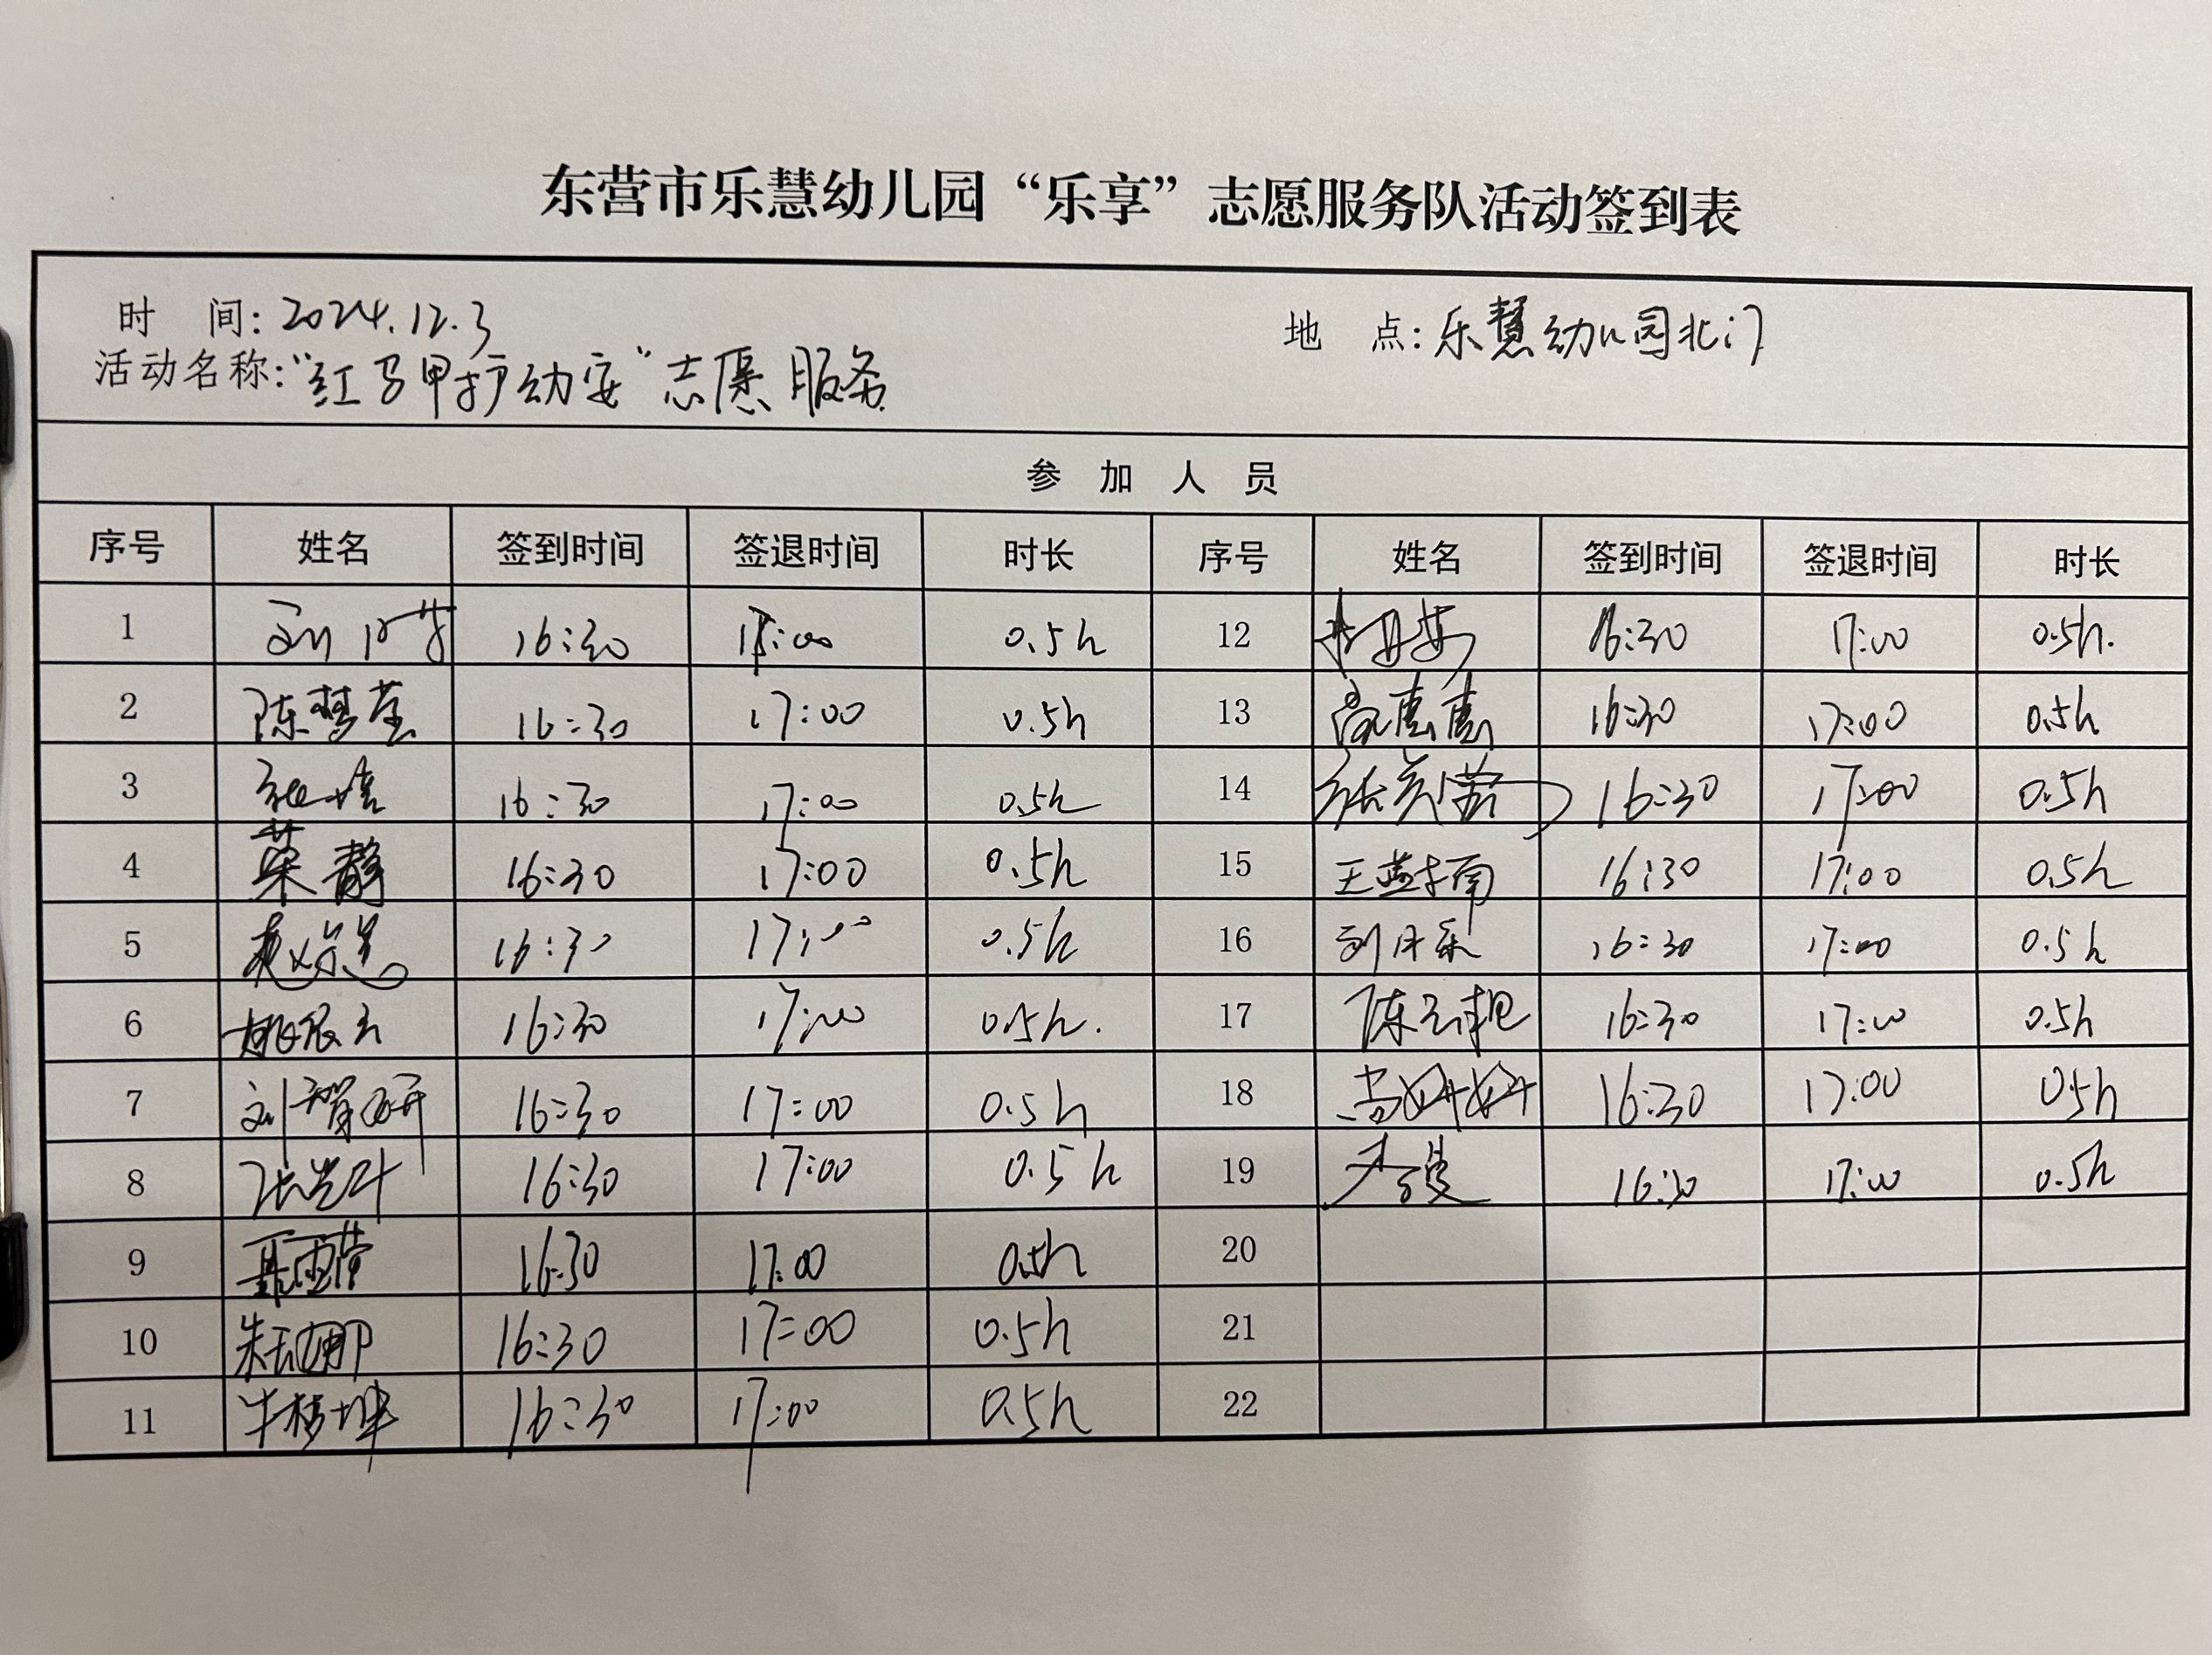 东营市乐慧幼儿园“乐享”志愿服务队活动签到表
时 间: 2024.12.3 地 点: 乐慧幼儿园北门
活动名称: “红马甲护幼安”志愿服务
参 加 人 员
序号 姓名 签到时间 签退时间 时长 序号 姓名 签到时间 签退时间 时长
1 16:30 0.5h 12 16:30 17:00 0.5h.
2 陈梦莹 16:30 17:00 0.5h 13 高惠惠 16:30 17:00 0.5h
3 16:30 17:00 0.5h 14 16:30 17:00 0.5h
4 荣静 16:30 17:00 0.5h 15 16:30 17:00 0.5h
5 16:30 17:00 0.5h 16 16:30 17:00 0.5h
6 16:30 17:00 0.5h. 17 16:30 17:00 0.5h
7 刘智研 16:30 17:00 0.5h 18 16:30 17:00 0.5h
8 16:30 17:00 0.5h 19 16:30 17:00 0.5h
9 16:30 17:00 0.5h 20
10 16:30 17:00 0.5h 21
11 16:30 17:00 0.5h 22